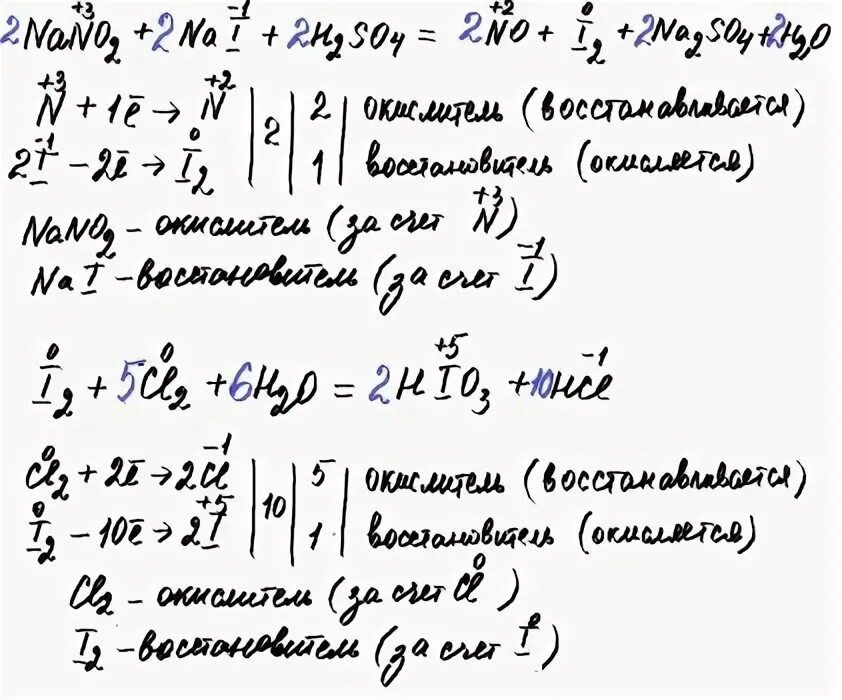 2NaN⁺³O₂ + 2NaI⁻¹ + 2H₂SO₄ = 2N⁺²O + I₂⁰ + 2Na₂SO₄ + 2H₂O
N⁺³ + 1ē → N⁺² | 2 | 2 | окислитель (восстанавливается)
2I⁻¹ − 2ē → I₂⁰ | | 1 | восстановитель (окисляется)
NaNO₂ – окислитель (за счет N⁺³)
NaI – восстановитель (за счет I⁻¹)
I₂⁰ + 5Cl₂⁰ + 6H₂O = 2HI⁺⁵O₃ + 10HCl⁻¹
Cl₂⁰ + 2ē → 2Cl⁻¹ | 10 | 5 | окислитель (восстанавливается)
I₂⁰ − 10ē → 2I⁺⁵ | | 1 | восстановитель (окисляется)
Cl₂ – окислитель (за счет Cl⁰)
I₂ – восстановитель (за счет I⁰)